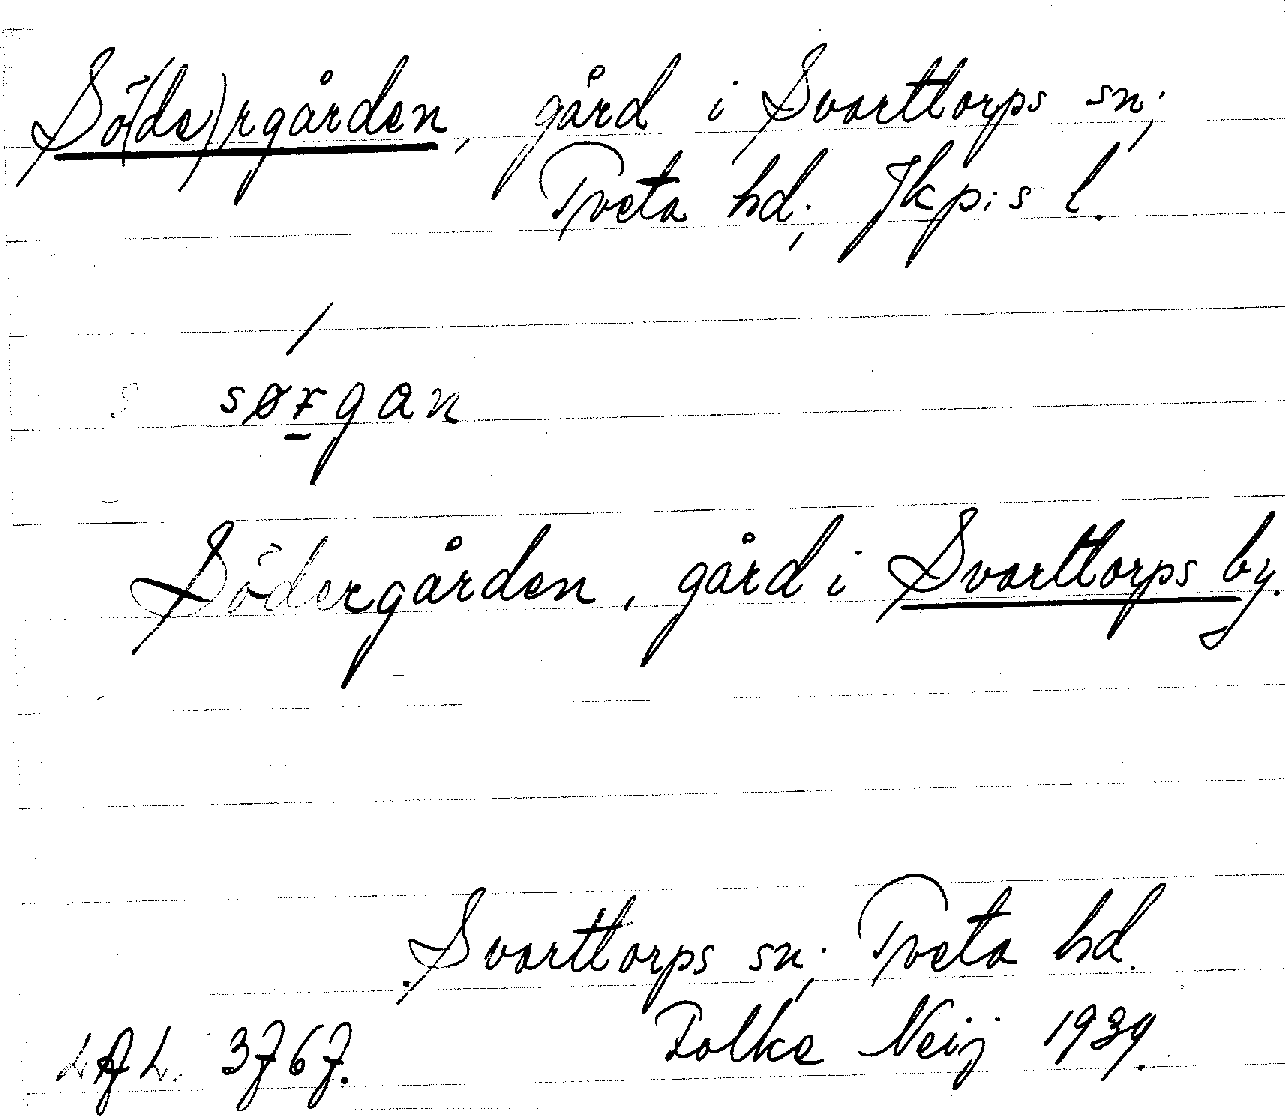 Sö(de)rgården, gård i Svarttorps sn;
Tveta hd; Jkp:s l.
/
sørgan
Södergården, gård i Svarttorps by.
Svarttorps sn; Tveta hd.
LAL. 3767. Folke Neij 1939.